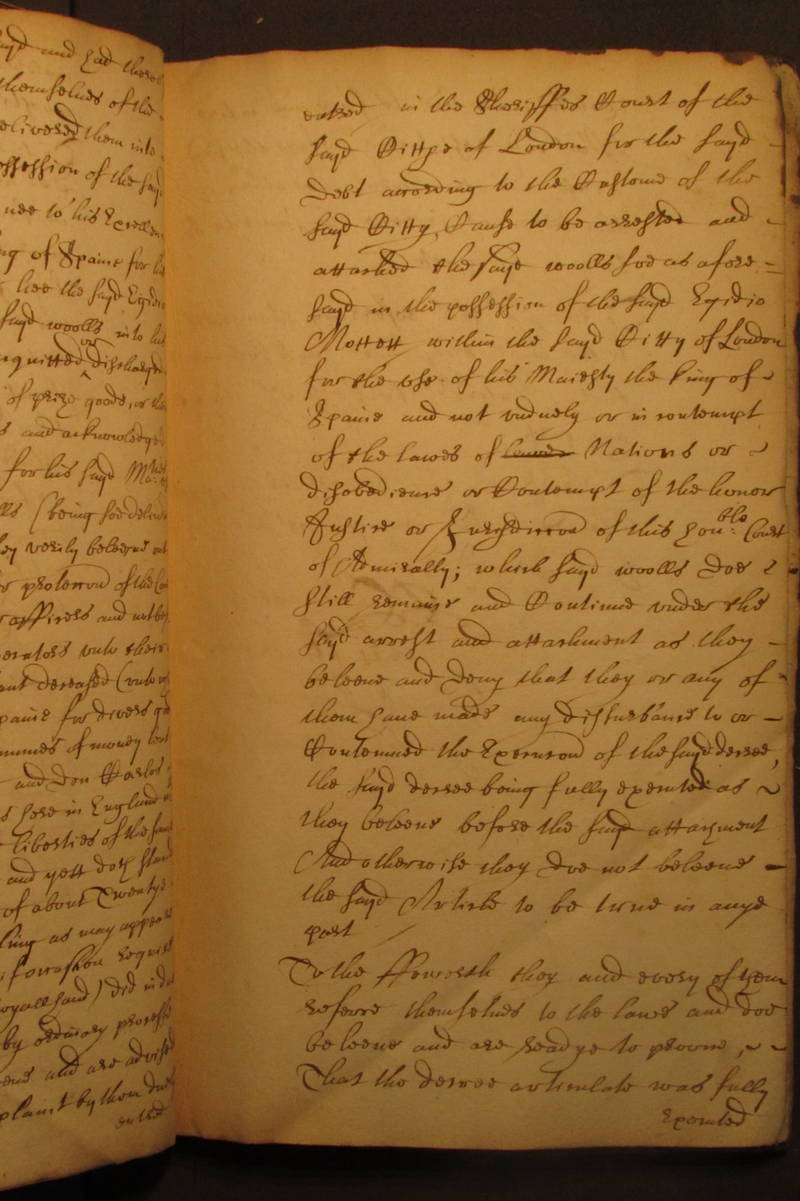 sayd and had there
themselves of the
delivered them into
possession of the sayd
nee to his Excellen
ng of Spaine for his
hee the sayd Egidio
sayd woolls into his
acquitted or discharged
of prize goods, or the
s and acknowledged
for his sayd Ma:ties
lls (being soe deliver
ey verily beleeve not
or protection of the Co
officers and not by
vnto their
ant deceased (vnto w
paine for divers g
summes of money
and Don Carlos
s here in England
liberties of the sam
and yett doth stand
of about Twentye
king as may appeare
if occasion require
royall hand) did in d
by ordinary processe
and are advised
plaint by them du
entred
entred in the Sheriffes Court of the
sayd Cittye of London for the sayd
debt according to the Custome of the
sayd Citty, Cause to be arrested and
attached the saye woolls soe as afore =
sayd in the possession of the sayd Egidio
Mottett within the sayd Citty of London
for the vse of his Maiesty the king of
Spaine and not vnduely or in contempt
of the lawes of lawes Nations or
disobedience or Contempt of the honor
Justice or Jurisdiccon of this hon:ble Court
of Admiralty; which sayd woolls doe
still remaine and Continue vnder the
sayd arrest and attachment as they
beleeve and deny that they or any of
them have made any disturbance to or
Contemned the Execucon of the sayd decree,
the sayd decree being fully executed as
they beleeve before the sayd attachment
And otherwise they doe not beleeve
the sayd Article to be true in anye
part
To the ffowerth they and every of them
referre themselves to the lawe and doe
beleeve and are readye to proove,
That the decree articulate was fully
Executed